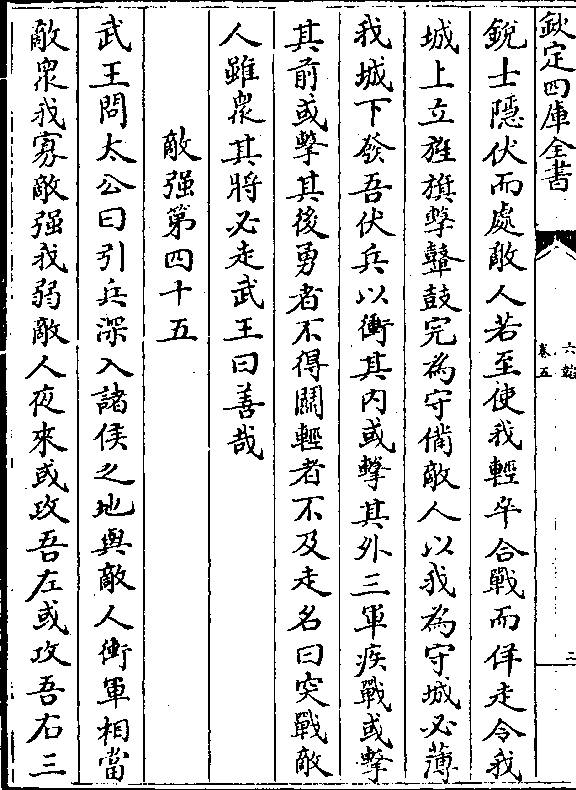 欽定四庫全書
六韜
卷五
二
銳士隱伏而處敵人若至使我輕卒合戰而佯走令我
城上立旌旗擊鼙鼓完為守備敵人以我為守城必薄
我城下發吾伏兵以衝其內或擊其外三軍疾戰或擊
其前或擊其後勇者不得鬭輕者不及走名曰突戰敵
人雖衆其將必走武王曰善哉
敵强第四十五
武王問太公曰引兵深入諸侯之地與敵人衝軍相當
敵衆我寡敵强我弱敵人夜來或攻吾左或攻吾右三